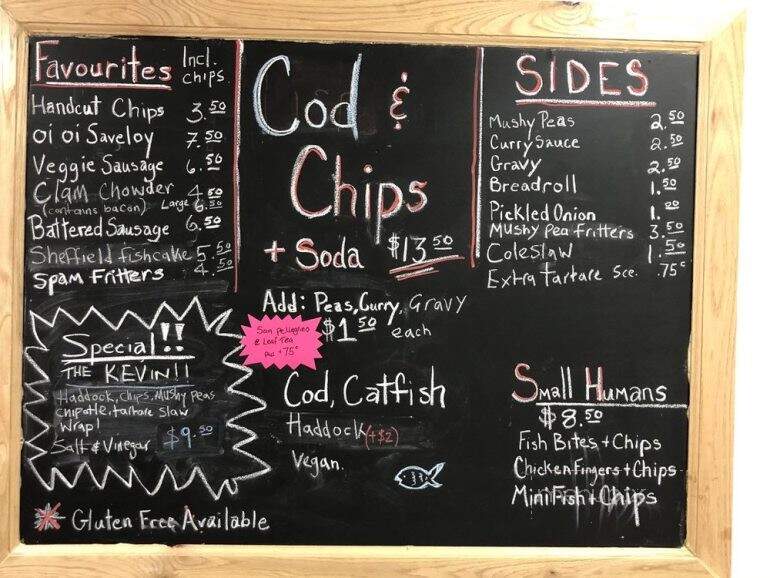 Favourites Incl. chips
Handcut Chips 3.50
oi oi Saveloy 7.50
Veggie Sausage 6.50
Clam Chowder 4.50
(contains bacon) Large 6.50
Battered Sausage 6.50
Sheffield fishcake 5.50
Spam Fritters 4.50
Special!!
THE KEVIN!!
Haddock, chips, Mushy Peas
chipotle, tartare slaw
wrap!
Salt & Vinegar $9.50
Gluten Free Available
Cod &
Chips
+ Soda $13.50
Add: Peas, Curry, Gravy
$1.50 each
San Pellegrino
& Leaf Tea
+75¢
Cod, Catfish
Haddock (+$2)
Vegan.
SIDES
Mushy Peas 2.50
Curry Sauce 2.50
Gravy 2.50
Breadroll 1.50
Pickled Onion 1.20
Mushy Pea Fritters 3.50
Coleslaw 1.50
Extra Tartare Sce. .75¢
Small Humans
$8.50
Fish Bites + Chips
Chicken Fingers + Chips
Mini Fish + Chips